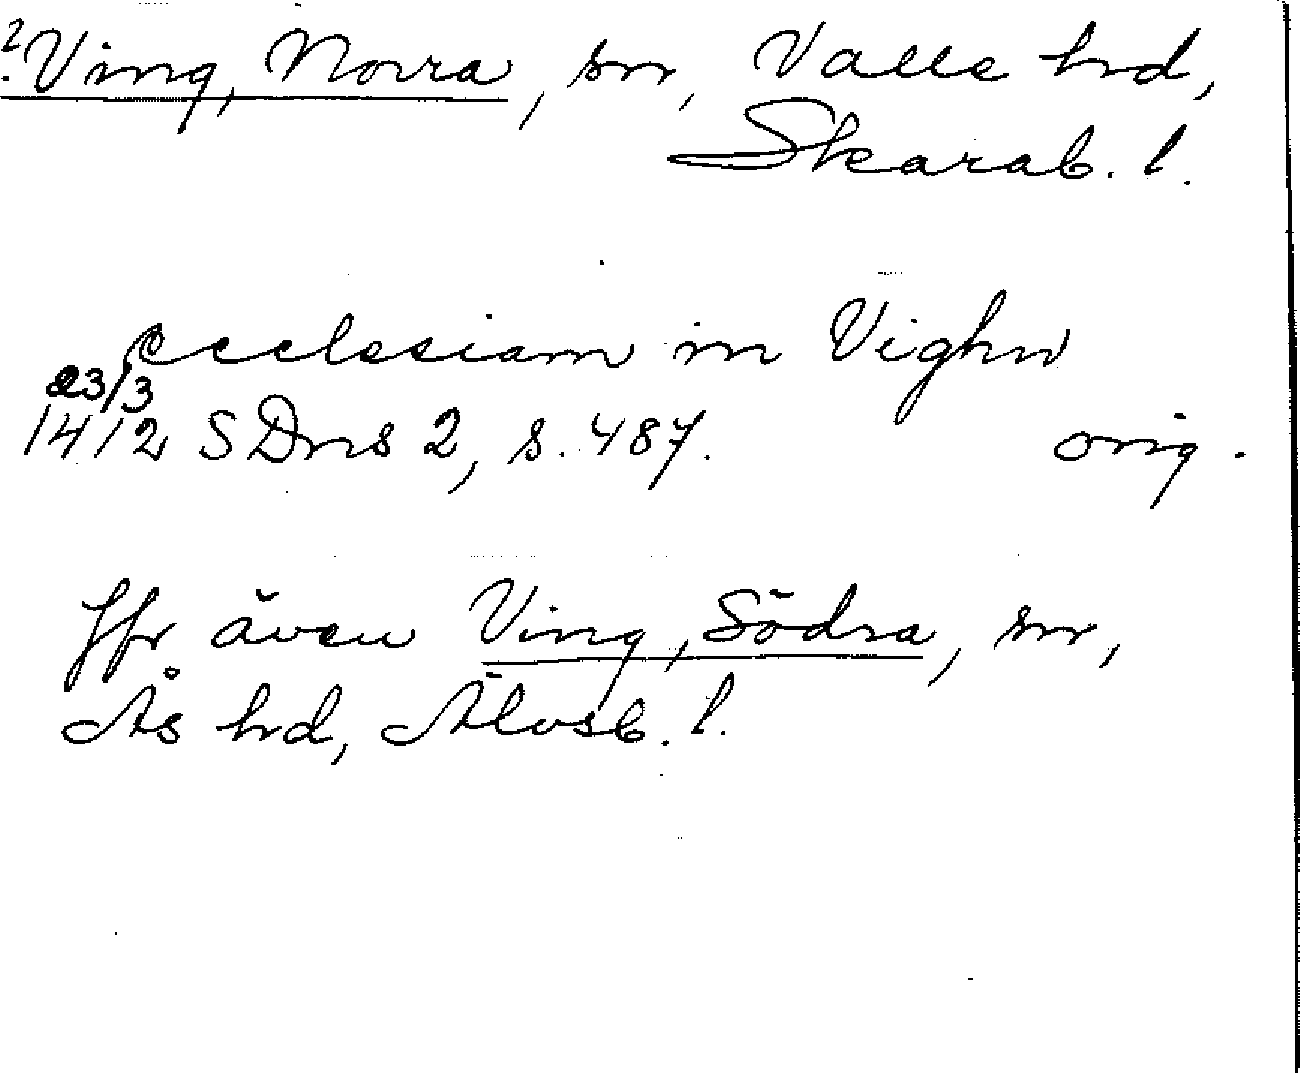 ? Ving, Norra, sn, Valle hd,
Skarab. l.
ecclesiam in Vighn
23/3
1412 SDns 2, s. 487. orig.
Jfr även Ving, Södra, sn,
Ås hd, Älvsb. l.